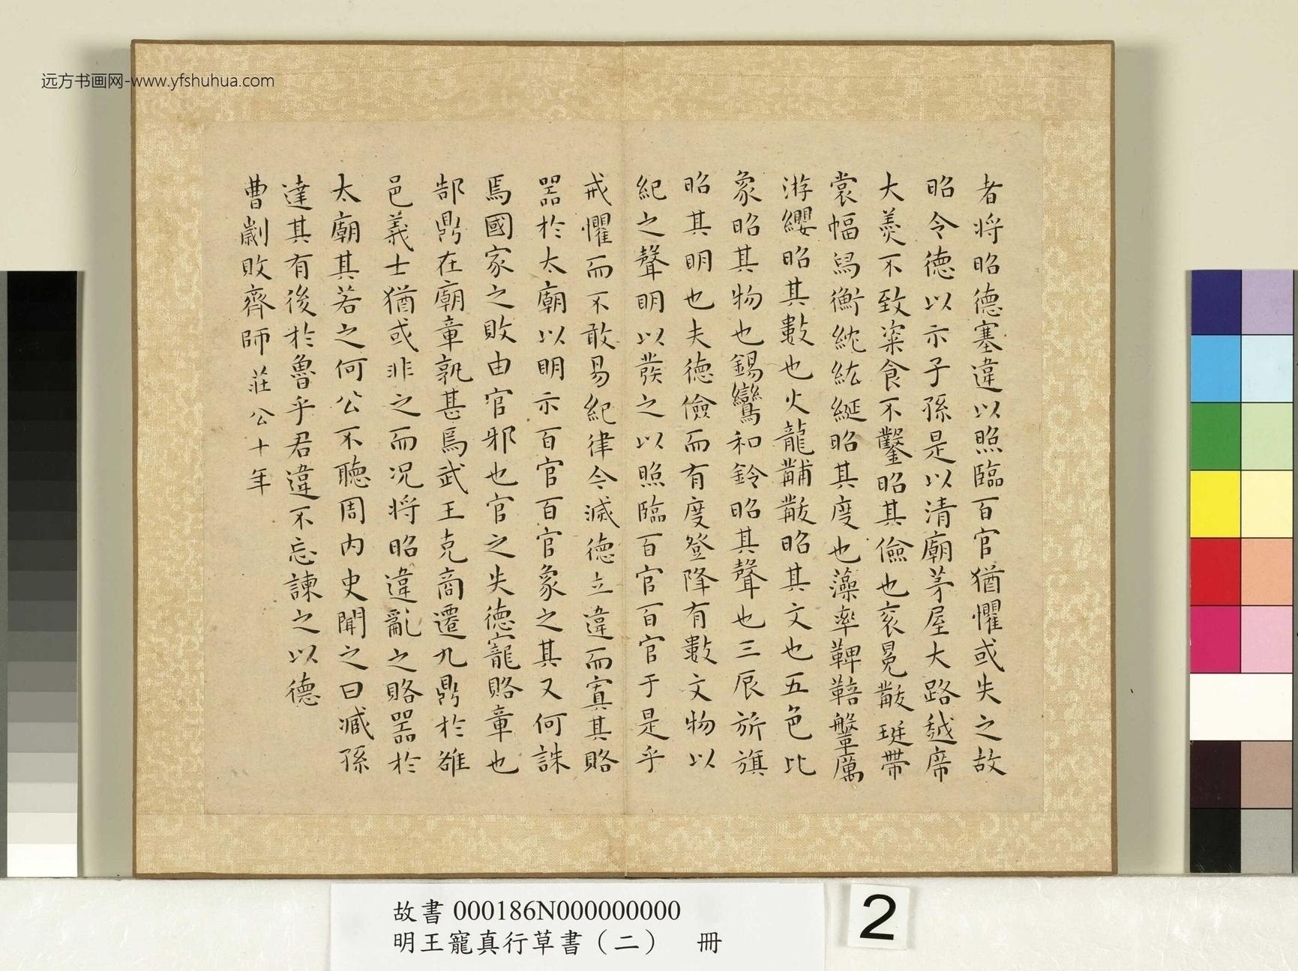 远方书画网-www.yfshuhua.com
者将昭德塞違以照臨百官猶懼或失之故
昭令德以示子孫是以清廟茅屋大路越席
大羹不致粢食不鑿昭其儉也衮冕黻珽帶
裳幅舄衡紞紘綖昭其度也藻率鞞鞛鞶厲
游纓昭其數也火龍黼黻昭其文也五色比
象昭其物也鍚鸞和鈴昭其聲也三辰旂旗
昭其明也夫德儉而有度登降有數文物以
紀之聲明以發之以照臨百官百官于是乎
戒懼而不敢易紀律今滅德立違而寘其賂
器於太廟以明示百官百官象之其又何誅
焉國家之敗由官邪也官之失德寵賂章也
郜鼎在廟章孰甚焉武王克商遷九鼎於雒
邑義士猶或非之而况将昭違亂之賂器於
太廟其若之何公不聽周内史聞之曰臧孫
達其有後於魯乎君違不忘諫之以德
曹劌敗齊師 莊公十年
故書 000186N000000000
明王寵真行草書（二） 冊
2